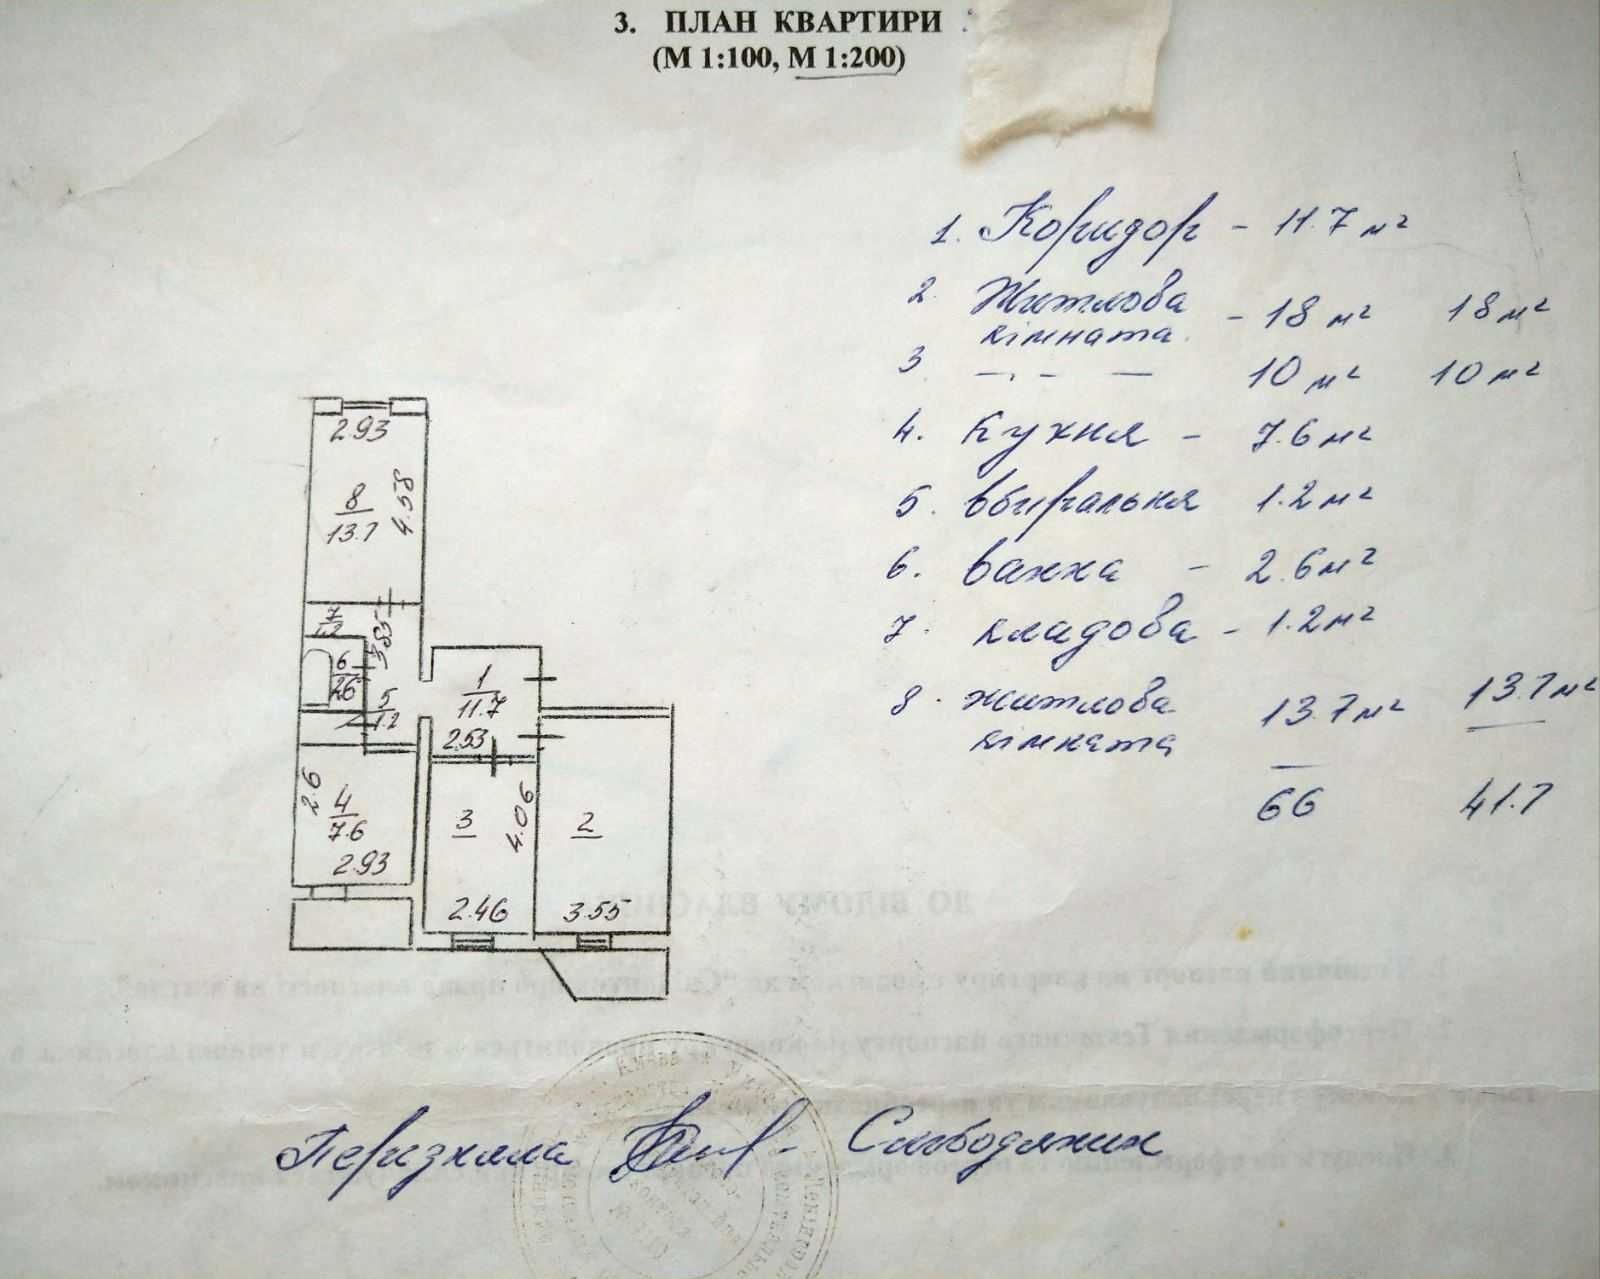 3. ПЛАН КВАРТИРИ
(М 1:100, М 1:200)
1. Коридор - 11.7 м²
2. Житлова кімната - 18 м² 18 м²
3 — - — 10 м² 10 м²
4. Кухня - 7.6 м²
5. вбиральня 1.2 м²
6. ванна - 2.6 м²
7. кладова - 1.2 м²
8. житлова кімната 13.7 м² 13.7 м²
66 41.7
2.93
8
13.7
4.58
7
1.2
3.85
6
2.6
5
1.2
1
11.7
2.53
2.6
4
7.6
2.93
3
4.06
2.46
2
3.55